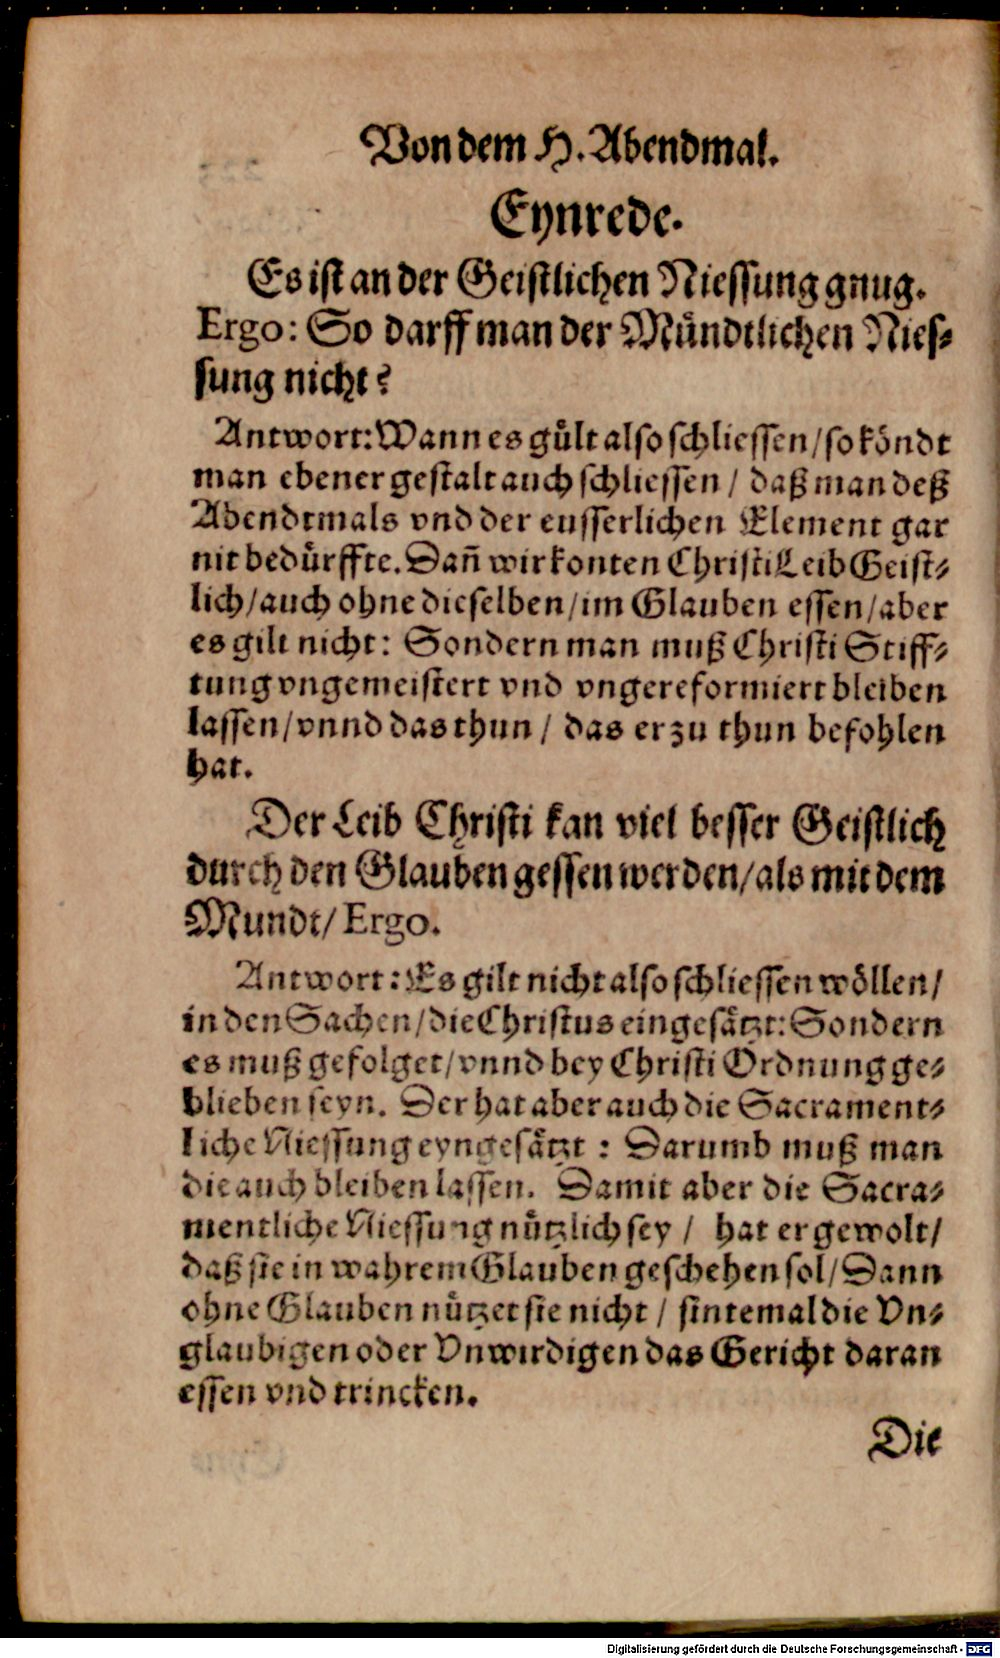 Von dem H. Abendmal.
Eynrede.
Es ist an der Geistlichen Niessung gnug.
Ergo: So darff man der Mündtlichen Nies-
sung nicht?
Antwort: Wann es gült also schliessen/ so köndt
man ebener gestalt auch schliessen / daß man deß
Abendtmals vnd der eusserlichen Element gar
nit bedürffte. Dañ wir konten Christi Leib Geist-
lich/ auch ohne dieselben/ im Glauben essen/ aber
es gilt nicht: Sondern man muß Christi Stiff-
tung vngemeistert vnd vngereformiert bleiben
lassen/ vnnd das thun / das er zu thun befohlen
hat.
Der Leib Christi kan viel besser Geistlich
durch den Glauben gessen werden/ als mit dem
Mundt/ Ergo.
Antwort: Es gilt nicht also schliessen wöllen/
in den Sachen/ die Christus eingesätzt: Sondern
es muß gefolget/ vnnd bey Christi Ordnung ge-
blieben seyn. Der hat aber auch die Sacrament-
liche Niessung eyngesätzt : Darumb muß man
die auch bleiben lassen. Damit aber die Sacra-
mentliche Niessung nützlich sey / hat er gewolt/
daß sie in wahrem Glauben geschehen sol/ Dann
ohne Glauben nützet sie nicht / sintemal die Vn-
glaubigen oder Vnwirdigen das Gericht daran
essen vnd trincken.
Die
Digitalisierung gefördert durch die Deutsche Forschungsgemeinschaft - DFG